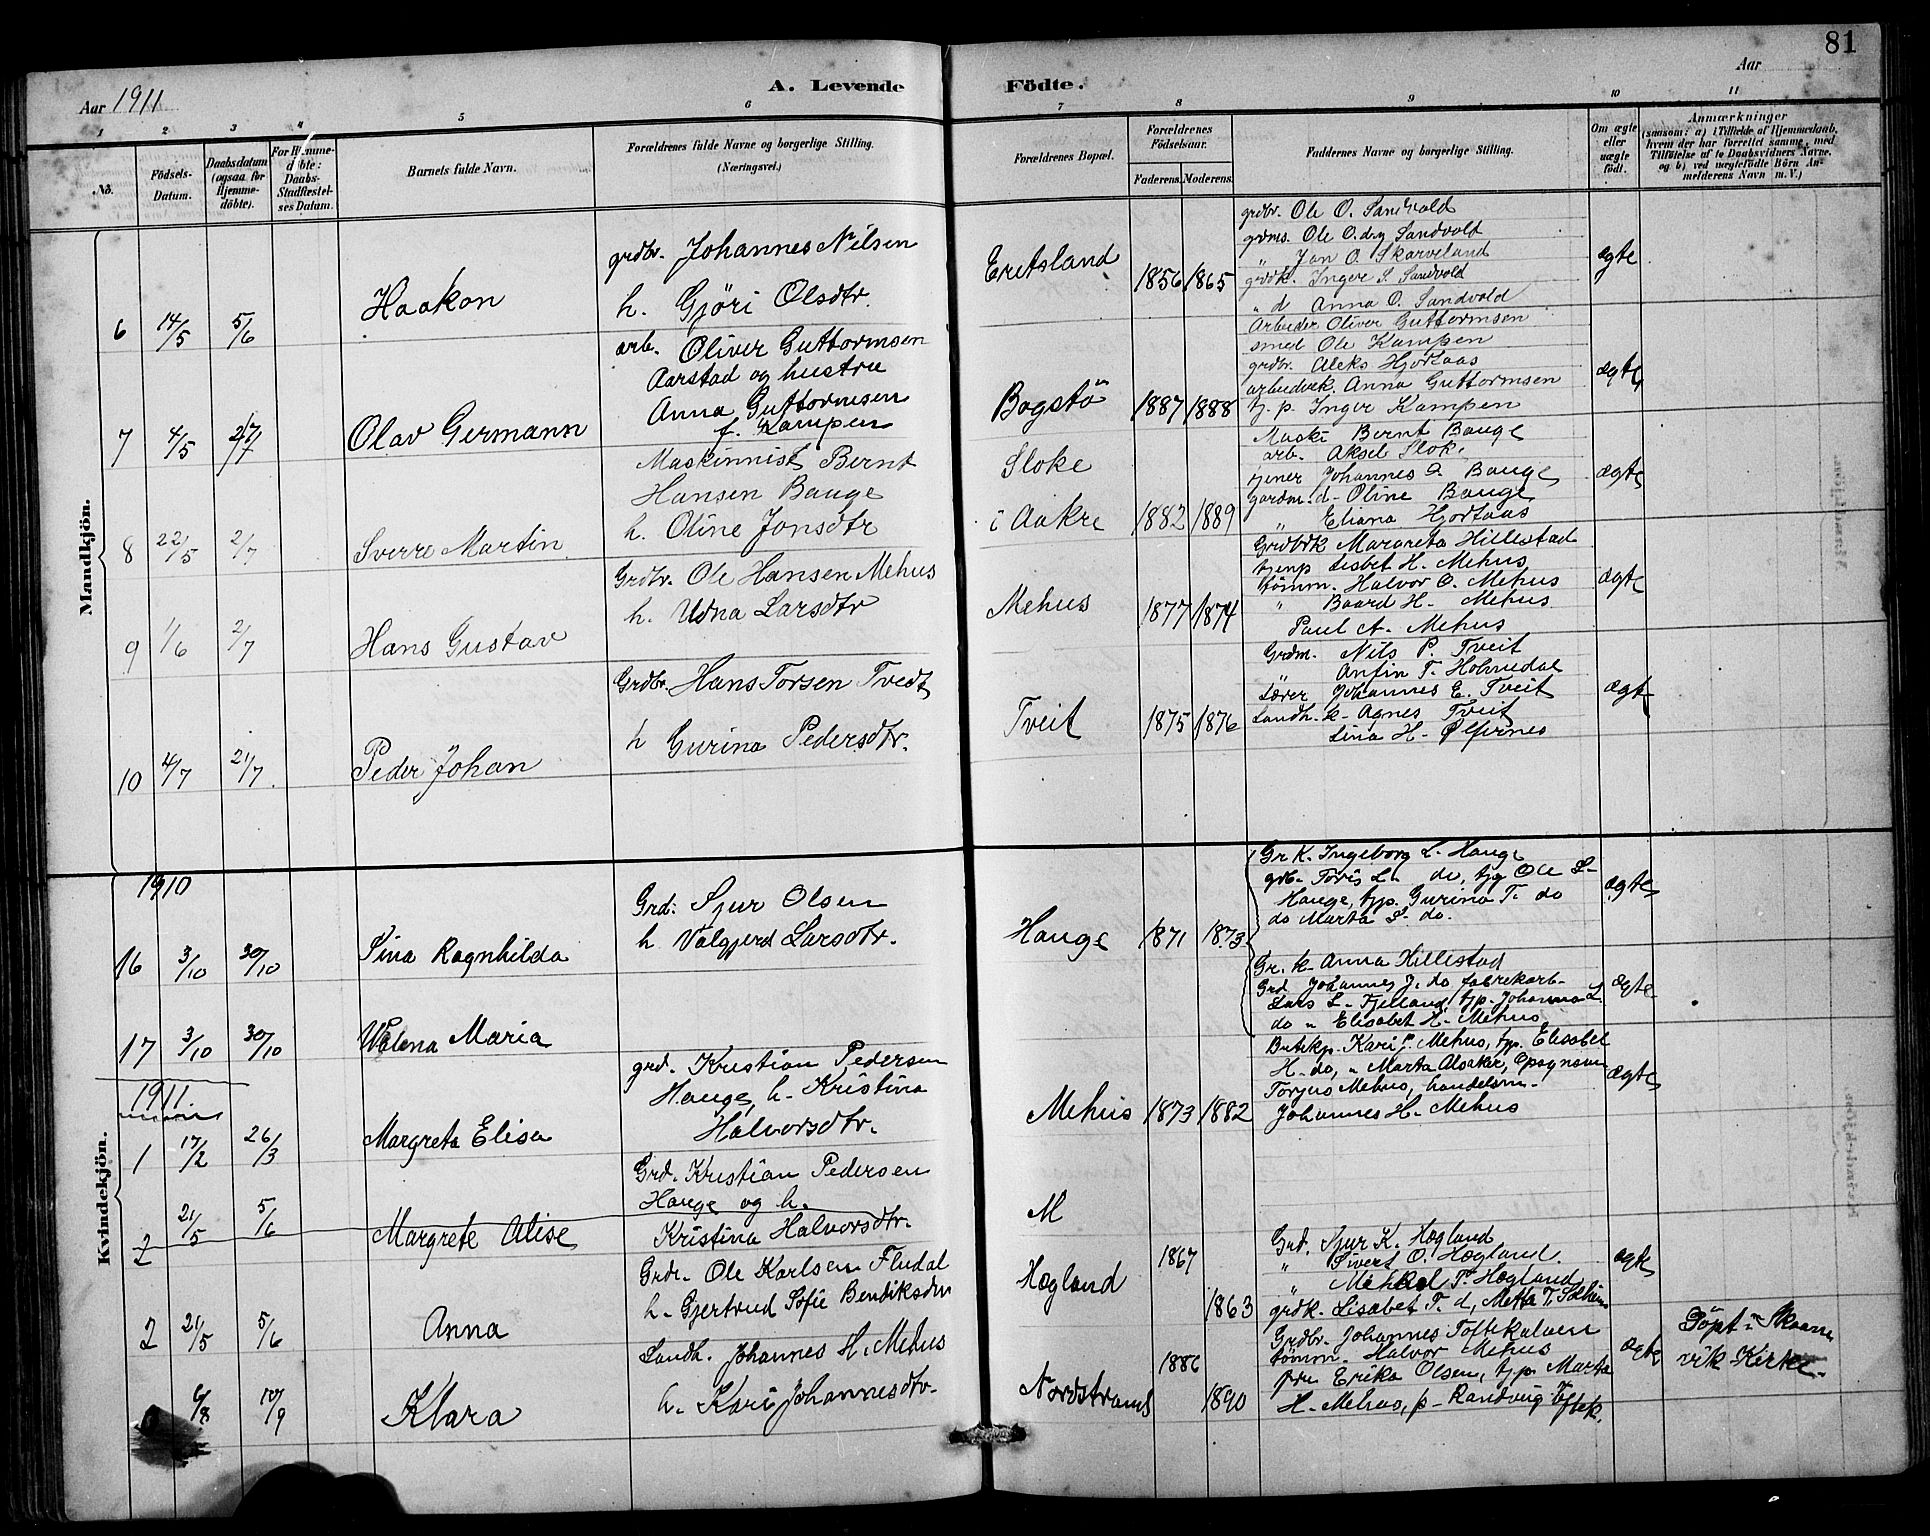 81
Aar 1911
A. Levende
Födte.
Aar
1 2 3 4 5 6 7 8 9 10 11
No.
Födsels-
Datum.
Daabsdatum
(ogsaa for
Hjemme-
döbte).
For Hjemme-
döbte:
Daabs-
Stadfæstel-
ses Datum.
Barnets fulde Navn.
Forældrenes fulde Navne og borgerlige Stilling.
(Næringsvei.)
Forældrenes Bopæl.
Forældrenes
Födselsaar.
Faderens. Moderens.
Faddernes Navne og borgerlige Stilling.
Om ægte
eller
uægte
födt.
Anmærkninger
(saasom: a) i Tilfælde af Hjemmedaab,
hvem der har forrettet samme, med
Tilföielse af to Daabsvidners Navne.
og b) ved uægtefödte Börn An-
melderens Navn m. V.)
Mandkjön.
6 14/5 5/6 Haakon
grdbr. Johannes Nilsen
h. Gjöri Olsdtr.
Eretsland 1856 1865
grdbr. Ole O. Sandvold
grdms. Ole O. d.y Sandvold
" Jon O. Skarveland
grdk. Inger S. Sandvold
" d Anna O. Sandvold
ægte
7 4/5 2/7 Olav Germann
arb. Oliver Guttormsen
Aarstad og hustru
Anna Guttormsen
f. Kampen
Bogstö 1887 1888
Arbeider Oliver Guttormsen
smed Ole Kampen
grdbr. Aleks Hjortaas
arbeidsk. Anna Guttormsen
tj. p. Inger Kampen
ægte
8 22/5 2/7 Sverre Martin
Maskinnist Bernt
Hansen Bauge
h. Oline Jonsdtr
Sloke
i Aakre 1882 1889
Maski Bernt Bauge
arb. Aksel Sloke
tjener Johannes O. Bauge
gardm. d- Oline Bauge
" Eliana Hjortaas
ægte
9 1/6 2/7 Hans Gustav
Grdbr. Ole Hansen Mehus
h. Udna Larsdtr
Mehus 1877 1874
Grdbrk Margreta Hillestad
tjenp Lisbet H. Mehus
tömm. Halvor O. Mehus
" Baard H. Mehus
Paul A. Mehus
ægte
10 4/7 21/7 Peder Johan
Grdbr. Hans Torsen Tvedt
h Gurina Pedersdtr.
Tveit 1875 1876
Grdm. Nils P. Tveit
Anfin T. Holmedal
Lærer Johannes E. Tveit
Landh. k- Agnes Tveit
Lina H. Ølfernes
ægte
Kvindekjön.
1910
16 3/10 30/10 Sina Ragnhilda
Grd: Sjur Olsen
h. Valgjerd Larsdtr.
Hauge 1871 1873
Gr. K. Ingeborg L. Hauge
grb. Toris L. do, tjg Ole L-
Hauge, tjp. Gurina T. do
do Marta L. do.
ægte
17 3/10 30/10 Valena Maria
Gr. k- Anna Hillestad
Grd. Johannes J. do fabrekarb-
Lars L- Fjelland, tjp. Johanna L
do " Elisabet H. Mehus
ægte
1911
1 17/2 26/3 Margreta Elisa
grd. Kristian Pedersen
Hauge, h. Kristina
Halvorsdtr.
Mehus 1873 1882
Butikp. Kari J. Mehus, tjp. Elisabet
H. do, " Marta Alsaker,
Torjus Mehus, handelsm.
Johannes H. Mehus
ægte
2 21/5 5/6 Margrete Alise
Grd. Kristian Pedersen
Hauge og h.
Kristina Halvorsdtr.
M
2 21/5 5/6 Anna
Grdr. Ole Karlsen Fludal
h. Gjertrud Sofie Bendiksdtr
Hægland 1867 1863
Grd. Sjur K. Hægland
" Sivert O. Hægland.
" Mikkel T. Hægland
grdk. Lisabet T. d, Metta T. Solheim
ægte
6/8 10/9 Klara
Landh. Johannes H. Mehus
h. Kari Johannesdtr.
Nordstrand 1886 1890
Grdbr. Johannes Toftekalven
tömm. Halvor Mehus
fru Erika Olsen, tjp. Marta
H. Mehus, p- Randveig Toftek.
ægte
Döpt i Skaane-
vik Kirke.